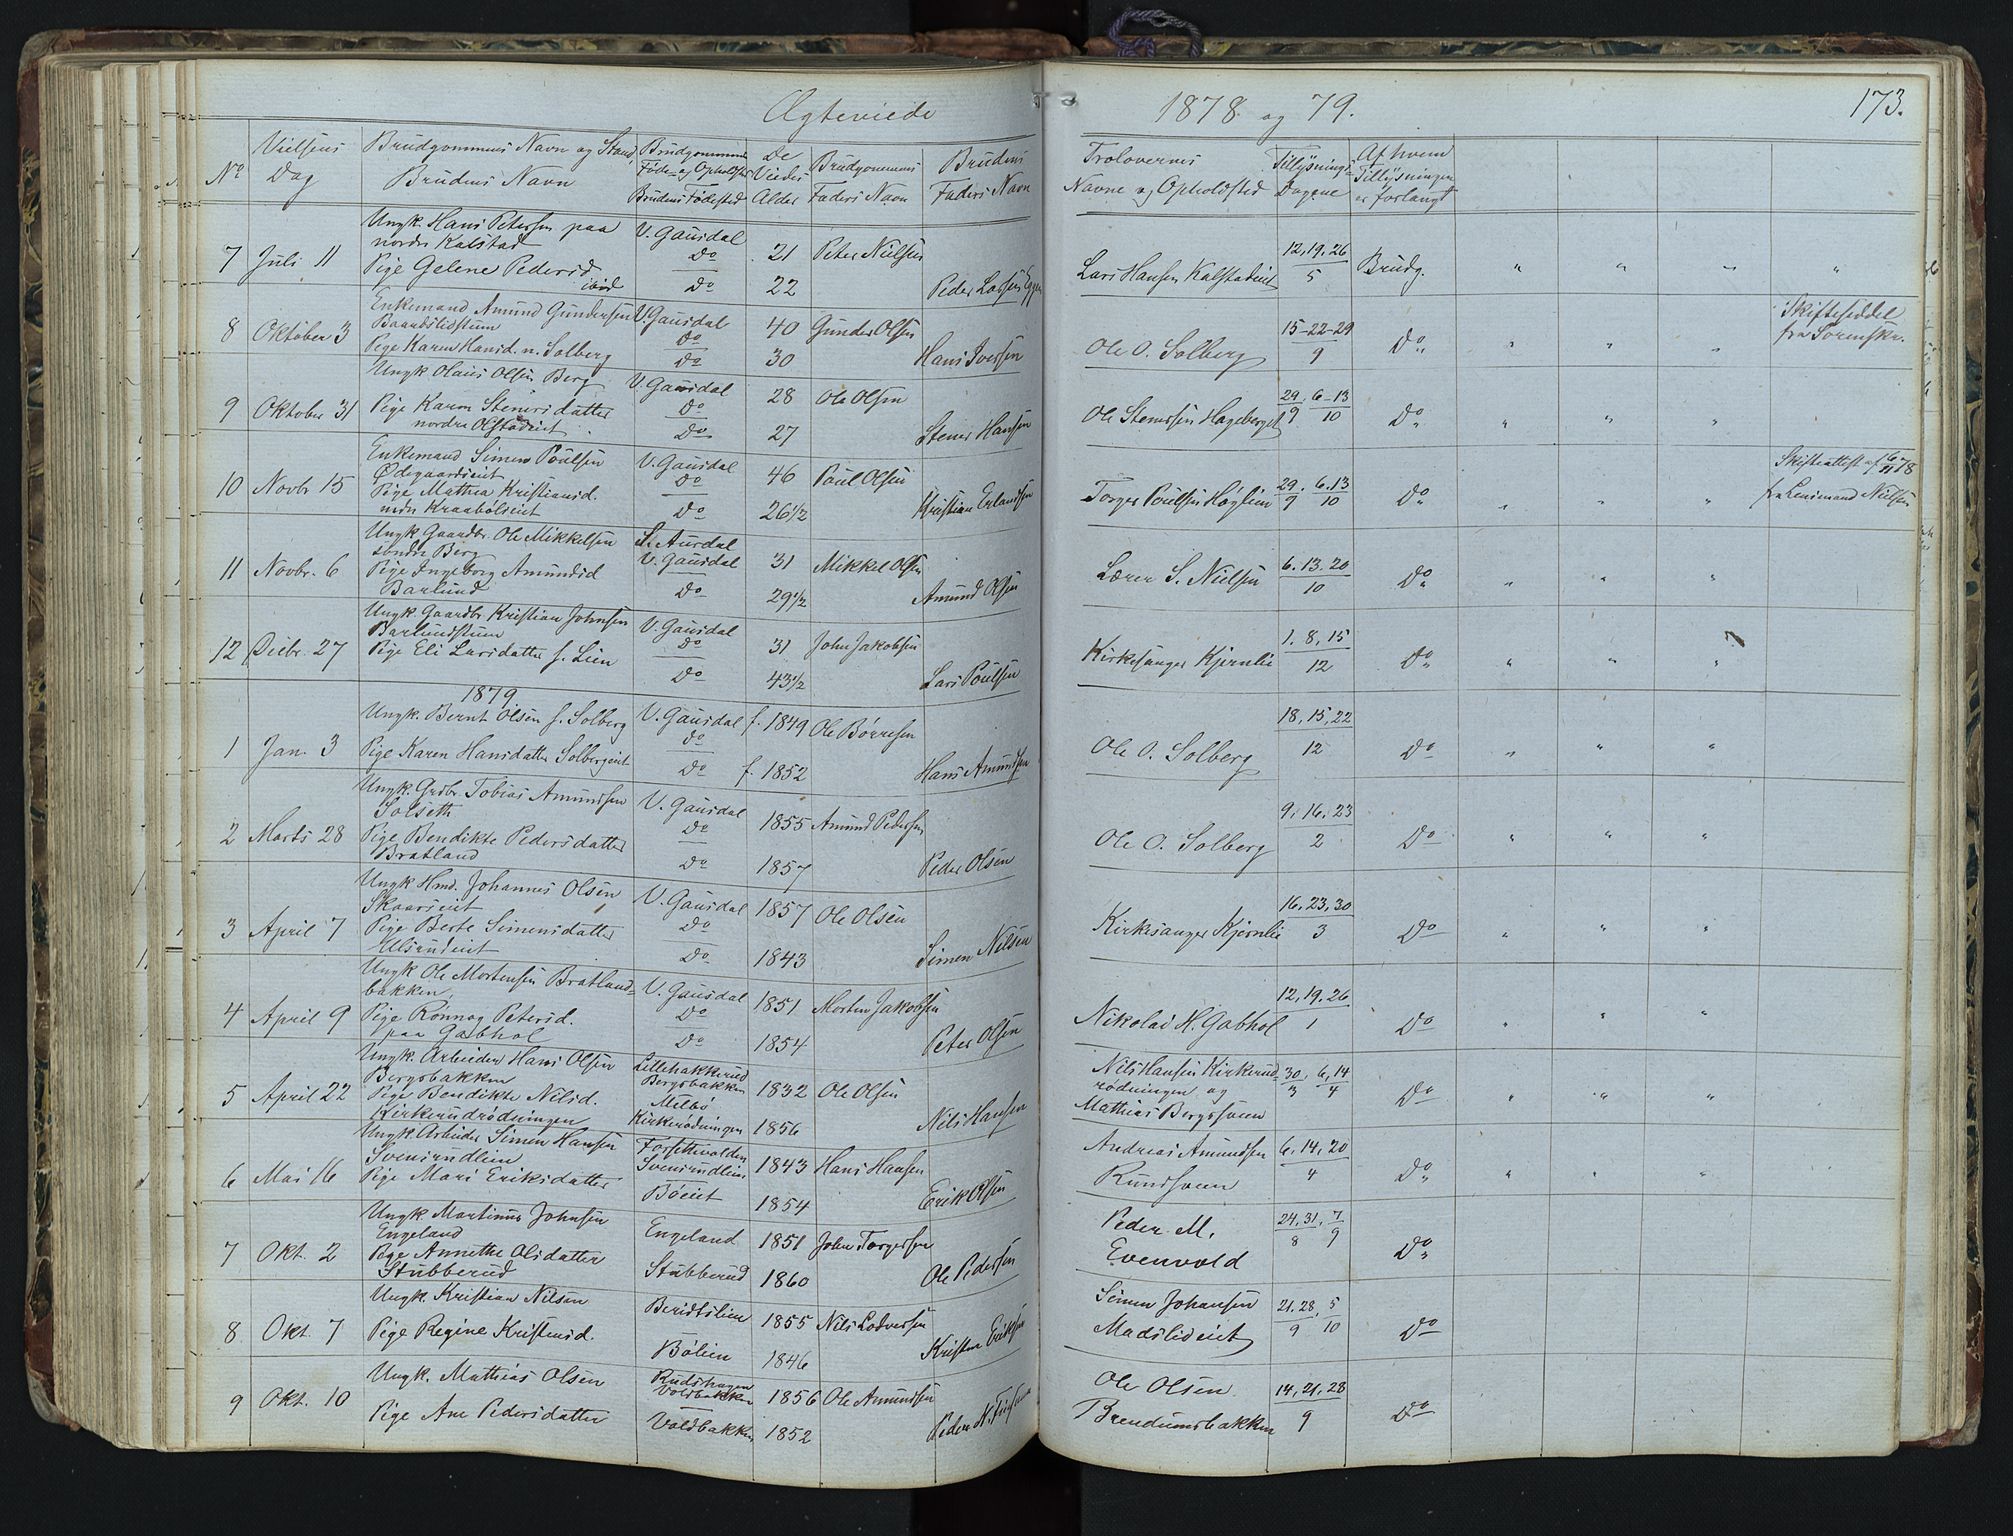 Ægteviede
1878 og 79.
173.
No
Vielsens Dag
Brudgommens Navn og Stand,
Brudens Navn
Brudgommens
Føde- og Opholdsted
Brudens Fødested
De Viedes Alder
Brudgommens Faders Navn
Brudens Faders Navn
Trolovernes Navne og Opholdsted
Tillysnings Dagene
Af hvem Tillysningen er forlangt
7 Juli 11
Ungk. Hans Petersen paa
nordre Kalstad
Pige Gelene Pedersd. ibid
V. Gausdal
Do
Do
21
22
Peter Nielsen
Peder Larsen Eggen
Lars Hansen Kalstadeiet
12, 19, 26
5
Brudg.
8 Oktober 3
Enkemand Amund Gundersen
Baardslistuen
Pige Karen Hansd. n. Solberg
V. Gausdal
Do
Do
40
30
Gunder Olsen
Hans Iversen
Ole O. Solberg
15-22-29
9
Do
Skifteseddel
fra Sorenskr.
9 Oktober 31
Ungk Olaus Olsen Berg
Pige Karen Stenersdatter
nordre Olstadeiet
V. Gausdal
Do
Do
28
27
Ole Olsen
Stener Hansen
Ole Stensen Hageberget
29, 6-13
9 10
Do
10 Novbr 15
Enkemand Simen Poulsen
Ødegaardseiet
Pige Mathea Kristiansd.
nedre Kraabøleiet
V. Gausdal
Do
Do
46
26 1/2
Poul Olsen
Kristian Erlandsen
Torger Poulsen Høglien
29, 6, 13
9 10
Do
Skifteattest af 6/11 78
fra Lensmand Nielsen
11 Novbr. 6
Ungk Gaardbr. Ole Mikkelsen
søndre Berg
Pige Ingeborg Amundsd
Barlund
S. Aurdal
V. Gausdal
Do
31
29 1/2
Mikkel Olsen
Amund Olsen
Lærer S. Nielsen
6. 13. 20
10
Do
12 Decbr. 27
Ungk. Gaardbr Kristian Johnsen
Barlundstuen
Pige Eli Larsdatter s. Lien
V. Gausdal
Do
Do
31
43 1/2
John Jakobsen
Lars Poulsen
Kirkesanger Kjernlie
1, 8, 15
12
Do
1879
1 Jan. 3
Ungk. Bernt Olsen s. Solberg
Pige Karen Hansdatter Solbergeiet
V. Gausdal
Do
Do
f. 1849
f. 1852
Ole Børresen
Hans Amundsen
Ole O. Solberg
18, 15, 22
12
Do
2 Marts 28
Ungk. Grdbr. Tobias Amundsen
Solseth
Pige Bendikte Pedersdatter
Bratland
V. Gausdal
Do
Do
1855
1857
Amund Pedersen
Peder Olsen
Ole O. Solberg
9, 16, 23
2
Do
3 April 7
Ungk Hmd. Johannes Olsen
Skaarseiet
Pige Berte Simensdatter
Ulsrudeiet
V. Gausdal
Do
Do
1857
1843
Ole Olsen
Simen Nilsen
Kirkesanger Kjernlie
16, 23, 30
3
Do
4 April 9
Ungk Ole Mortensen Bratland-
bakken,
Pige Rønnog Petersd.
paa Gabhol
V. Gausdal
Do
Do
1851
1854
Morten Jakobsen
Peter Olsen
Nikolai H. Gabhol
12, 19, 26
1
Do
5 April 22
Ungk. Arbeider Hans Olsen
Bergsbakken
Pige Bendikte Nilsd.
Kirkerudrødningen
Lillehakkerud
Bergsbakken
Melbø
Kirkerødningen
1832
1856
Ole Olsen
Nils Hansen
Nils Hansen Kirkerud-
rødningen og
Mathias Bergssveen
30, 6, 14
3 4
Do
6 Mai 16
Ungk. Arbeider Simen Hansen
Svensrudlien
Pige Mari Eriksdatter
Forsethvolden
Svensrudlien
Bøeiet
1843
1854
Hans Hansen
Erik Olsen
Andreas Amundsen
Rundsveen
6, 14, 20
4
Do
7 Okt. 2
Ungk Martinus Johnsen
Engeland
Pige Annethe Olsdatter
Stubberud
Engeland
Stubberud
1851
1860
John Torgersen
Ole Pedersen
Peder M.
Evenvold
24, 31, 7
8 9
Do
8 Okt. 7
Ungk. Kristian Nilsen
Pige Regine Kristensd.
Beridtslien
Bølien
1855
1846
Nils Lodversen
Kristen Eriksen
Simen Johansen
Madslieiet
21, 28, 5
9 10
Do
9 Okt. 10
Ungk. Mathias Olsen
Pige Ane Pedersdatter
Rudshagen
Voldbakken
Voldbakken
1856
1852
Ole Amundsen
Ole Olsen
Brendumsbakken
14, 21, 28
9
Do